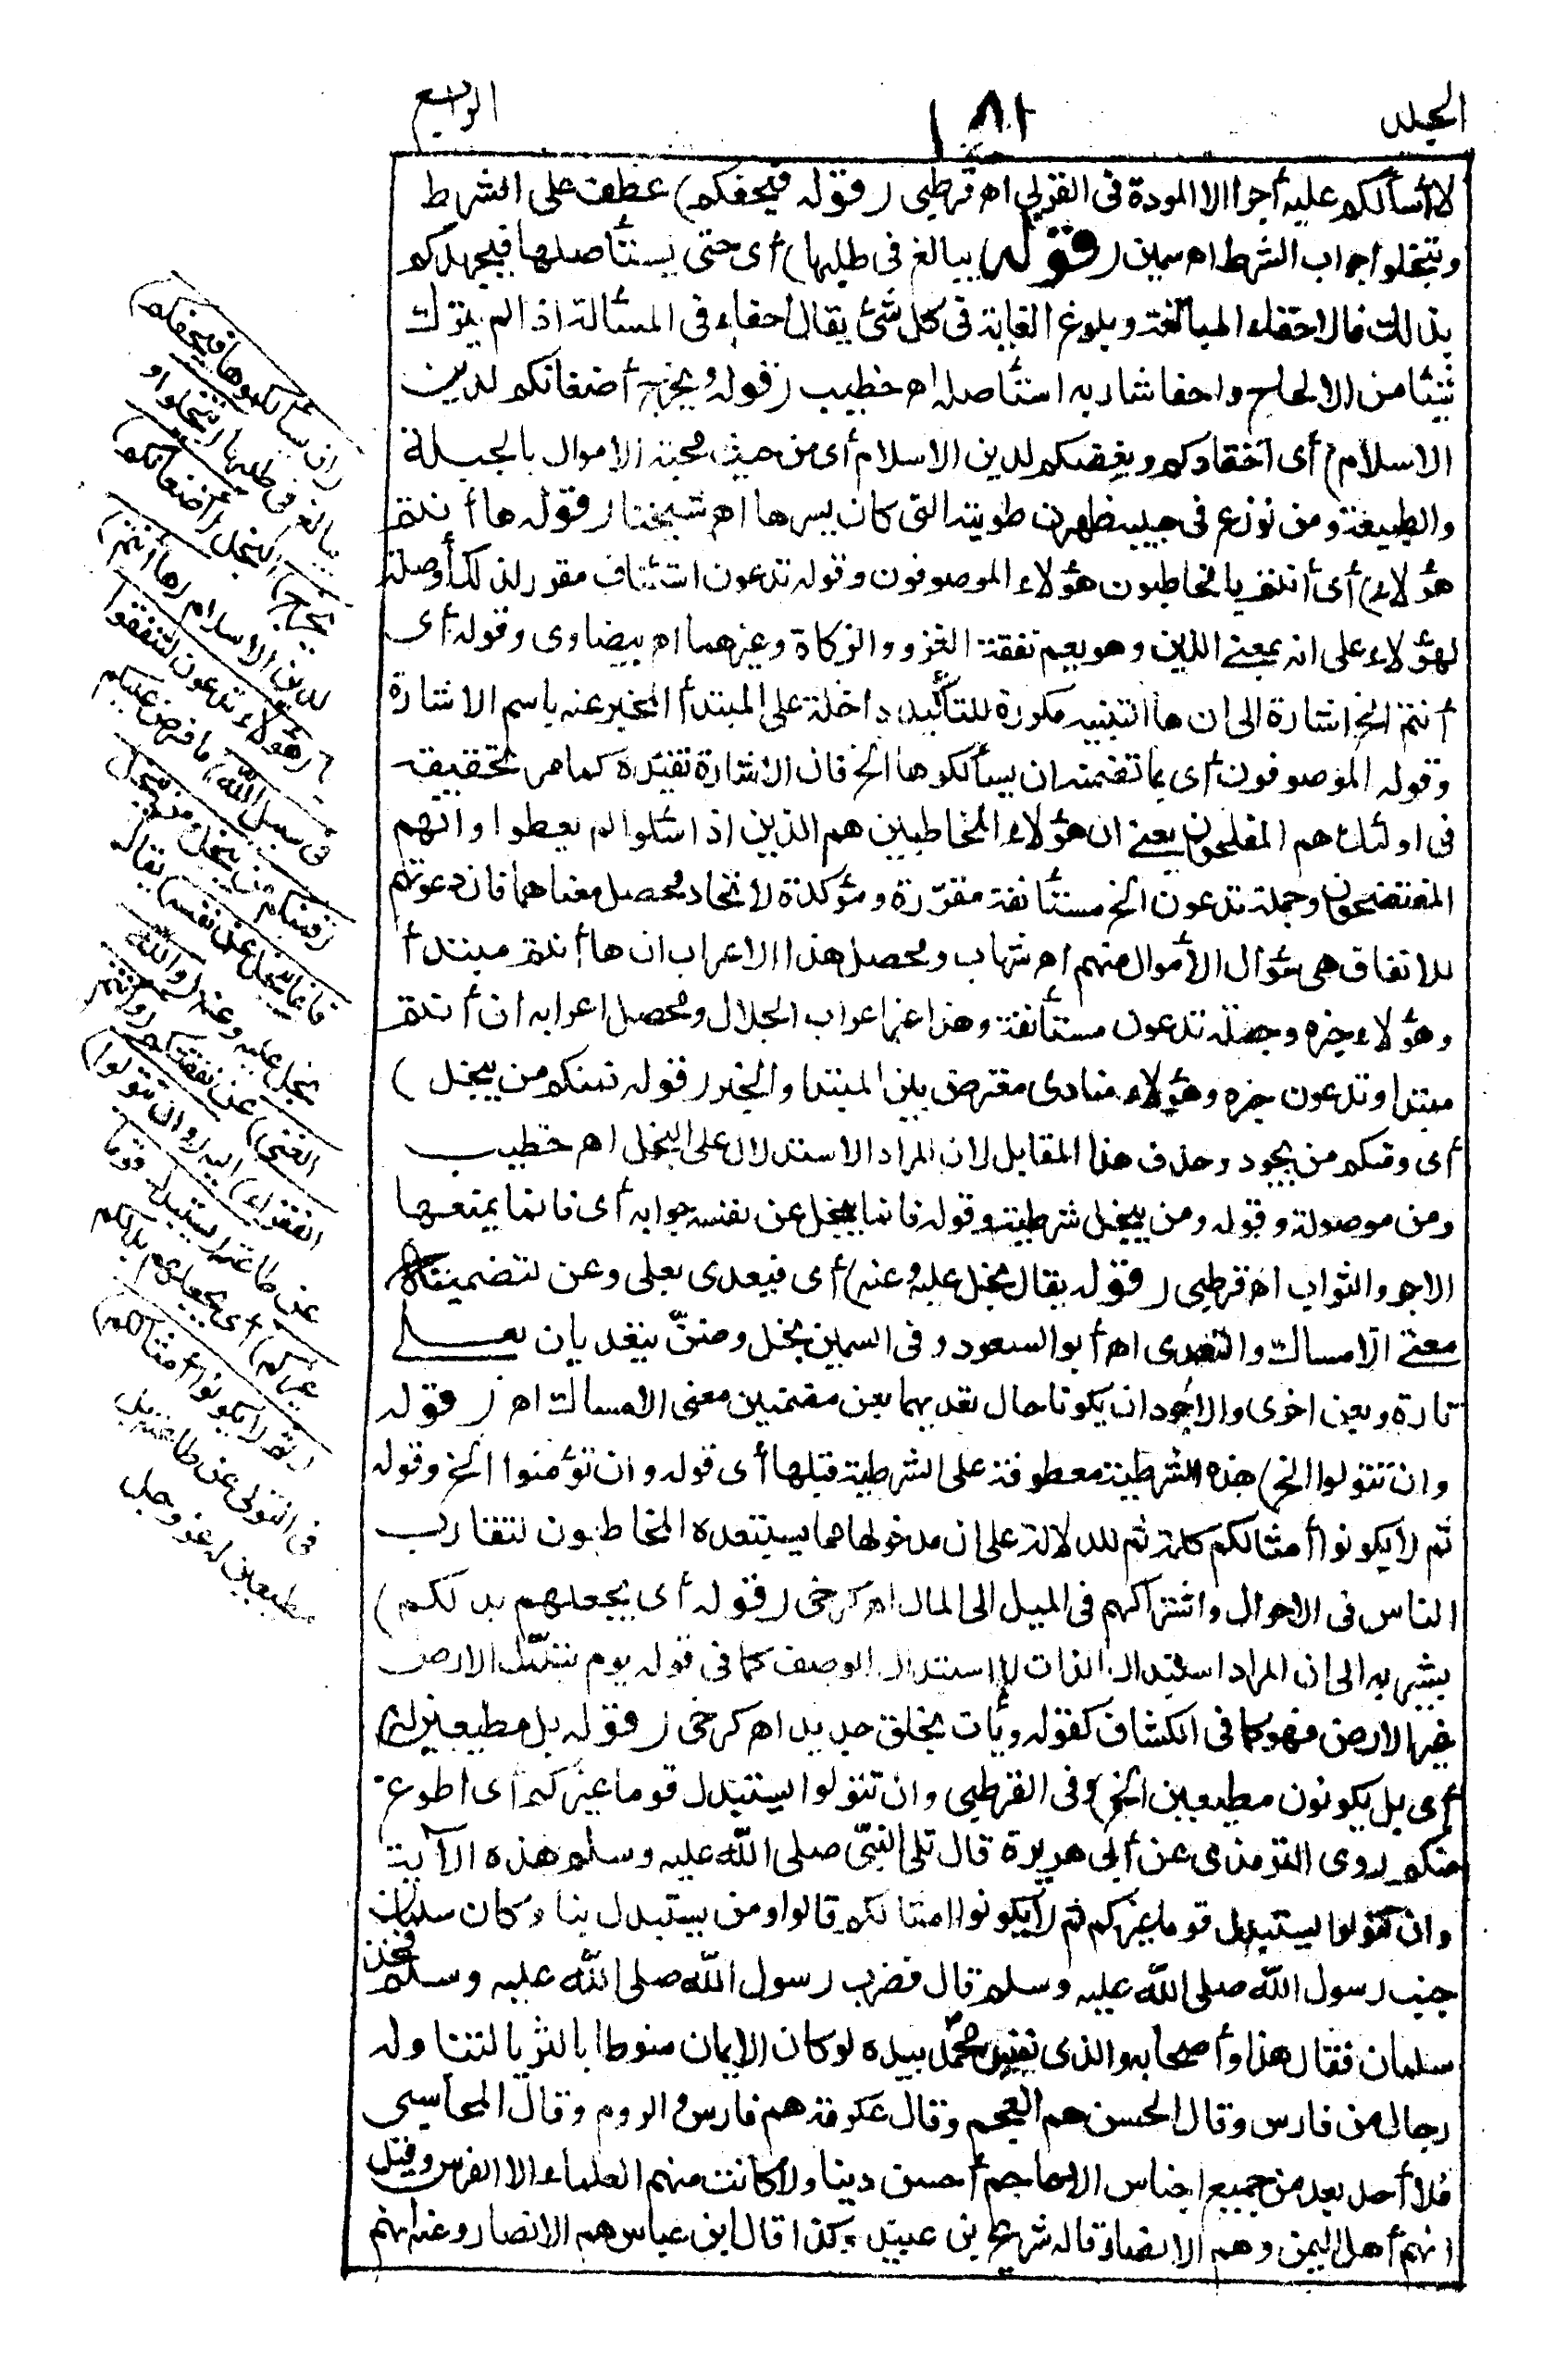 الجلد
١٨١
الرابع
لا أسألكم عليه أجرا الا المودة فى القربى اه قرطبى (قوله فيحفكم) عطف على الشرط
وتبخلوا جواب الشرط اه سمين (قوله يبالغ فى طلبها) أى حتى يستأصلها فيجهدكم
بذلك فالاحفاء المبالغة وبلوغ الغاية فى كل شئ يقال أحفاه فى المسألة اذا لم يترك
شيئا من الالحاح واحفا شاربه استأصله اه خطيب (قوله ويخرج أضغانكم لدين
الاسلام) أى أحقادكم وبغضكم لدين الاسلام أى من حيث محبة الاموال بالجبلة
والطبيعة ومن نوزع فى حبيبه ظهرت طويته التى كان يسرها اه شيخنا (قوله ها أنتم
هؤلاء) أى أنتم يا مخاطبون هؤلاء الموصوفون وقوله تدعون استئناف مقرر لذلك أوصلة
لهؤلاء على انه بمعنى الذين وهو يعم نفقة الغزو والزكاة وغيرهما اه بيضاوى وقوله أى
أنتم الخ اشارة الى ان ها التنبيه مكررة للتأكيد داخلة على المبتدأ المخبر عنه باسم الاشارة
وقوله الموصوفون أى بما تضمنه ان يسألكموها الخ فان الاشارة تفيده كما مر تحقيقه
فى اولئك هم المفلحون يعنى ان هؤلاء المخاطبين هم الذين اذا سئلوا لم يعطوا وانهم
المفتضحون وجملة تدعون الخ مستأنفة مقررة ومؤكدة لاتحاد محصل معناهما فان دعوتهم
للانفاق هى سؤال الأموال منهم اه شهاب ومحصل هذا الاعراب ان ها أنتم مبتدأ
وهؤلاء خبره وجملة تدعون مستأنفة وهذا غير اعراب الجلال ومحصل اعرابه ان أنتم
مبتدا وتدعون خبره وهؤلاء منادى معترض بين المبتدا والخبر (قوله فمنكم من يبخل)
أى ومنكم من يجود وحذف هذا المقابل لان المراد الاستدلال على البخل اه خطيب
ومن موصولة وقوله ومن يبخل شرطية وقوله فانما يبخل عن نفسه جوابه أى فانما يمنعها
الاجر والثواب اه قرطبى (قوله يقال بخل عليه وعنه) أى فيعدى بعلى وعن لتضمينه
معنى الامساك والتعدى اه أبو السعود وفى السمين بخل وضنّ يتعديان بعلى
تارة وبعن اخرى والاجود ان يكونا حال تعديهما بعن مضمنين معنى الامساك اه (قوله
وان تتولوا الخ) هذه الشرطية معطوفة على الشرطية قبلها أى قوله وان تؤمنوا الخ وقوله
ثم لا يكونوا أمثالكم كلمة ثم للدلالة على ان مدخولها مما يستبعده المخاطبون لتقارب
الناس فى الاحوال واشتراكهم فى الميل الى المال اه كرخى (قوله أى يجعلهم بدلكم)
يشير به الى ان المراد استبدال الذات لا استبدال الوصف كما فى قوله يوم تبدّل الارض
غير الارض فهو كما فى الكشاف كقوله ويأت بخلق جديد اه كرخى (قوله بل مطيعين له)
أى بل يكونون مطيعين الخ وفى القرطبى وان تتولوا يستبدل قوما غيركم أى اطوع
منكم روى الترمذى عن أبى هريرة قال تلى النبىّ صلى الله عليه وسلم هذه الآية
وان تتولوا يستبدل قوما غيركم ثم لا يكونوا امثالكم قالوا ومن يستبدل بنا وكان سلمان
جنب رسول الله صلى الله عليه وسلم قال فضرب رسول الله صلى الله عليه وسلم فخذ
سلمان فقال هذا وأصحابه والذى نفس محمد بيده لو كان الايمان منوطا بالثريا لتناوله
رجال من فارس وقال الحسن هم العجم وقال عكرمة هم فارس والروم وقال المحاسبى
فلا أحد بعد من جميع اجناس الاعاجم أحسن دينا ولا كانت منهم العلماء الا الفرس وقيل
انهم أهل اليمن وهم الانصار قاله شريح بن عبيد وكذا قال ابن عباس هم الانصار وعنه انهم
(ان يسألكموها فيحفكم)
يبالغ فى طلبها (تبخلوا و
يخرج) البخل (أضغانكم)
لدين الاسلام (ها أنتم)
يا (هؤلاء تدعون لتنفقوا
فى سبيل الله) ما فرض عليكم
(فمنكم من يبخل ومن يبخل
فانما يبخل عن نفسه) يقال
بخل عليه وعنه (والله
الغنى) عن نفقتكم (وأنتم
الفقراء) اليه (وان تتولوا)
عن طاعته (يستبدل قوما
غيركم) أى يجعلهم بدلكم
(ثم لا يكونوا أمثالكم)
فى التولى عن طاعته بل
مطيعين له عز وجل